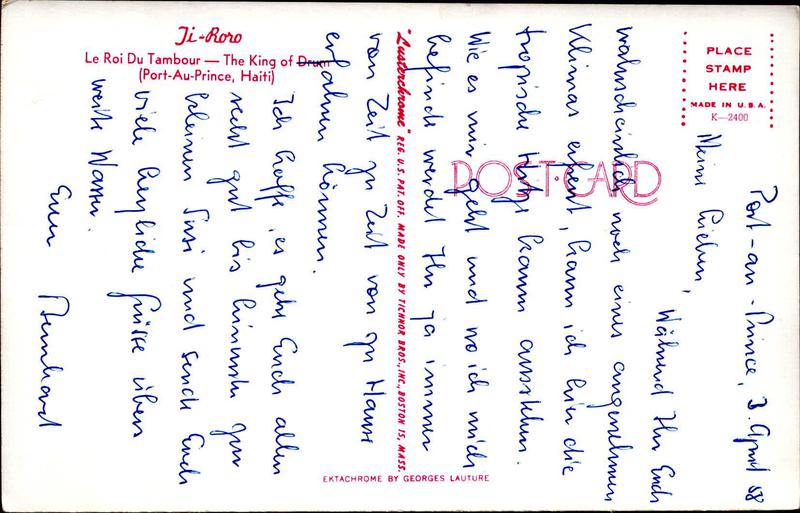 Ti-Roro
Le Roi Du Tambour — The King of Drum
(Port-Au-Prince, Haiti)
"Lusterchrome" REG. U.S. PAT. OFF. MADE ONLY BY TICHNOR BROS., INC., BOSTON 15, MASS.
POST CARD
PLACE
STAMP
HERE
MADE IN U.S.A.
K—2400
EKTACHROME BY GEORGES LAUTURE
Port-au-Prince, 3. April 58
Meine Lieben,
Während Ihr Euch
wahrscheinlich noch eines angenehmen
Klimas erfreut, kann ich hier die
tropische Hitze kaum ausstehen.
Wie es mir geht und wo ich mich
befinde werdet Ihr ja immer
von Zeit zu Zeit von zu Hause
erfahren können.
Ich hoffe, es geht Euch allen
recht gut bis hinunter zur
kleinen Susi und sende Euch
viele herzliche Grüsse übers
weite Wasser.
Euer Bernhard